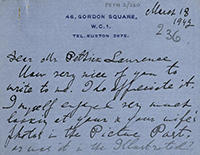 PETH 2/220
46, GORDON SQUARE,
W.C.1.
TEL. EUSTON 2675.
March 18
1942
236
Dear Mr Pethick Lawrence
How very nice of you to
write to me! I do appreciate it.
I myself enjoyed very much
looking at your & your wife's
photos in the Picture Post.
or was it in the Illustrated?